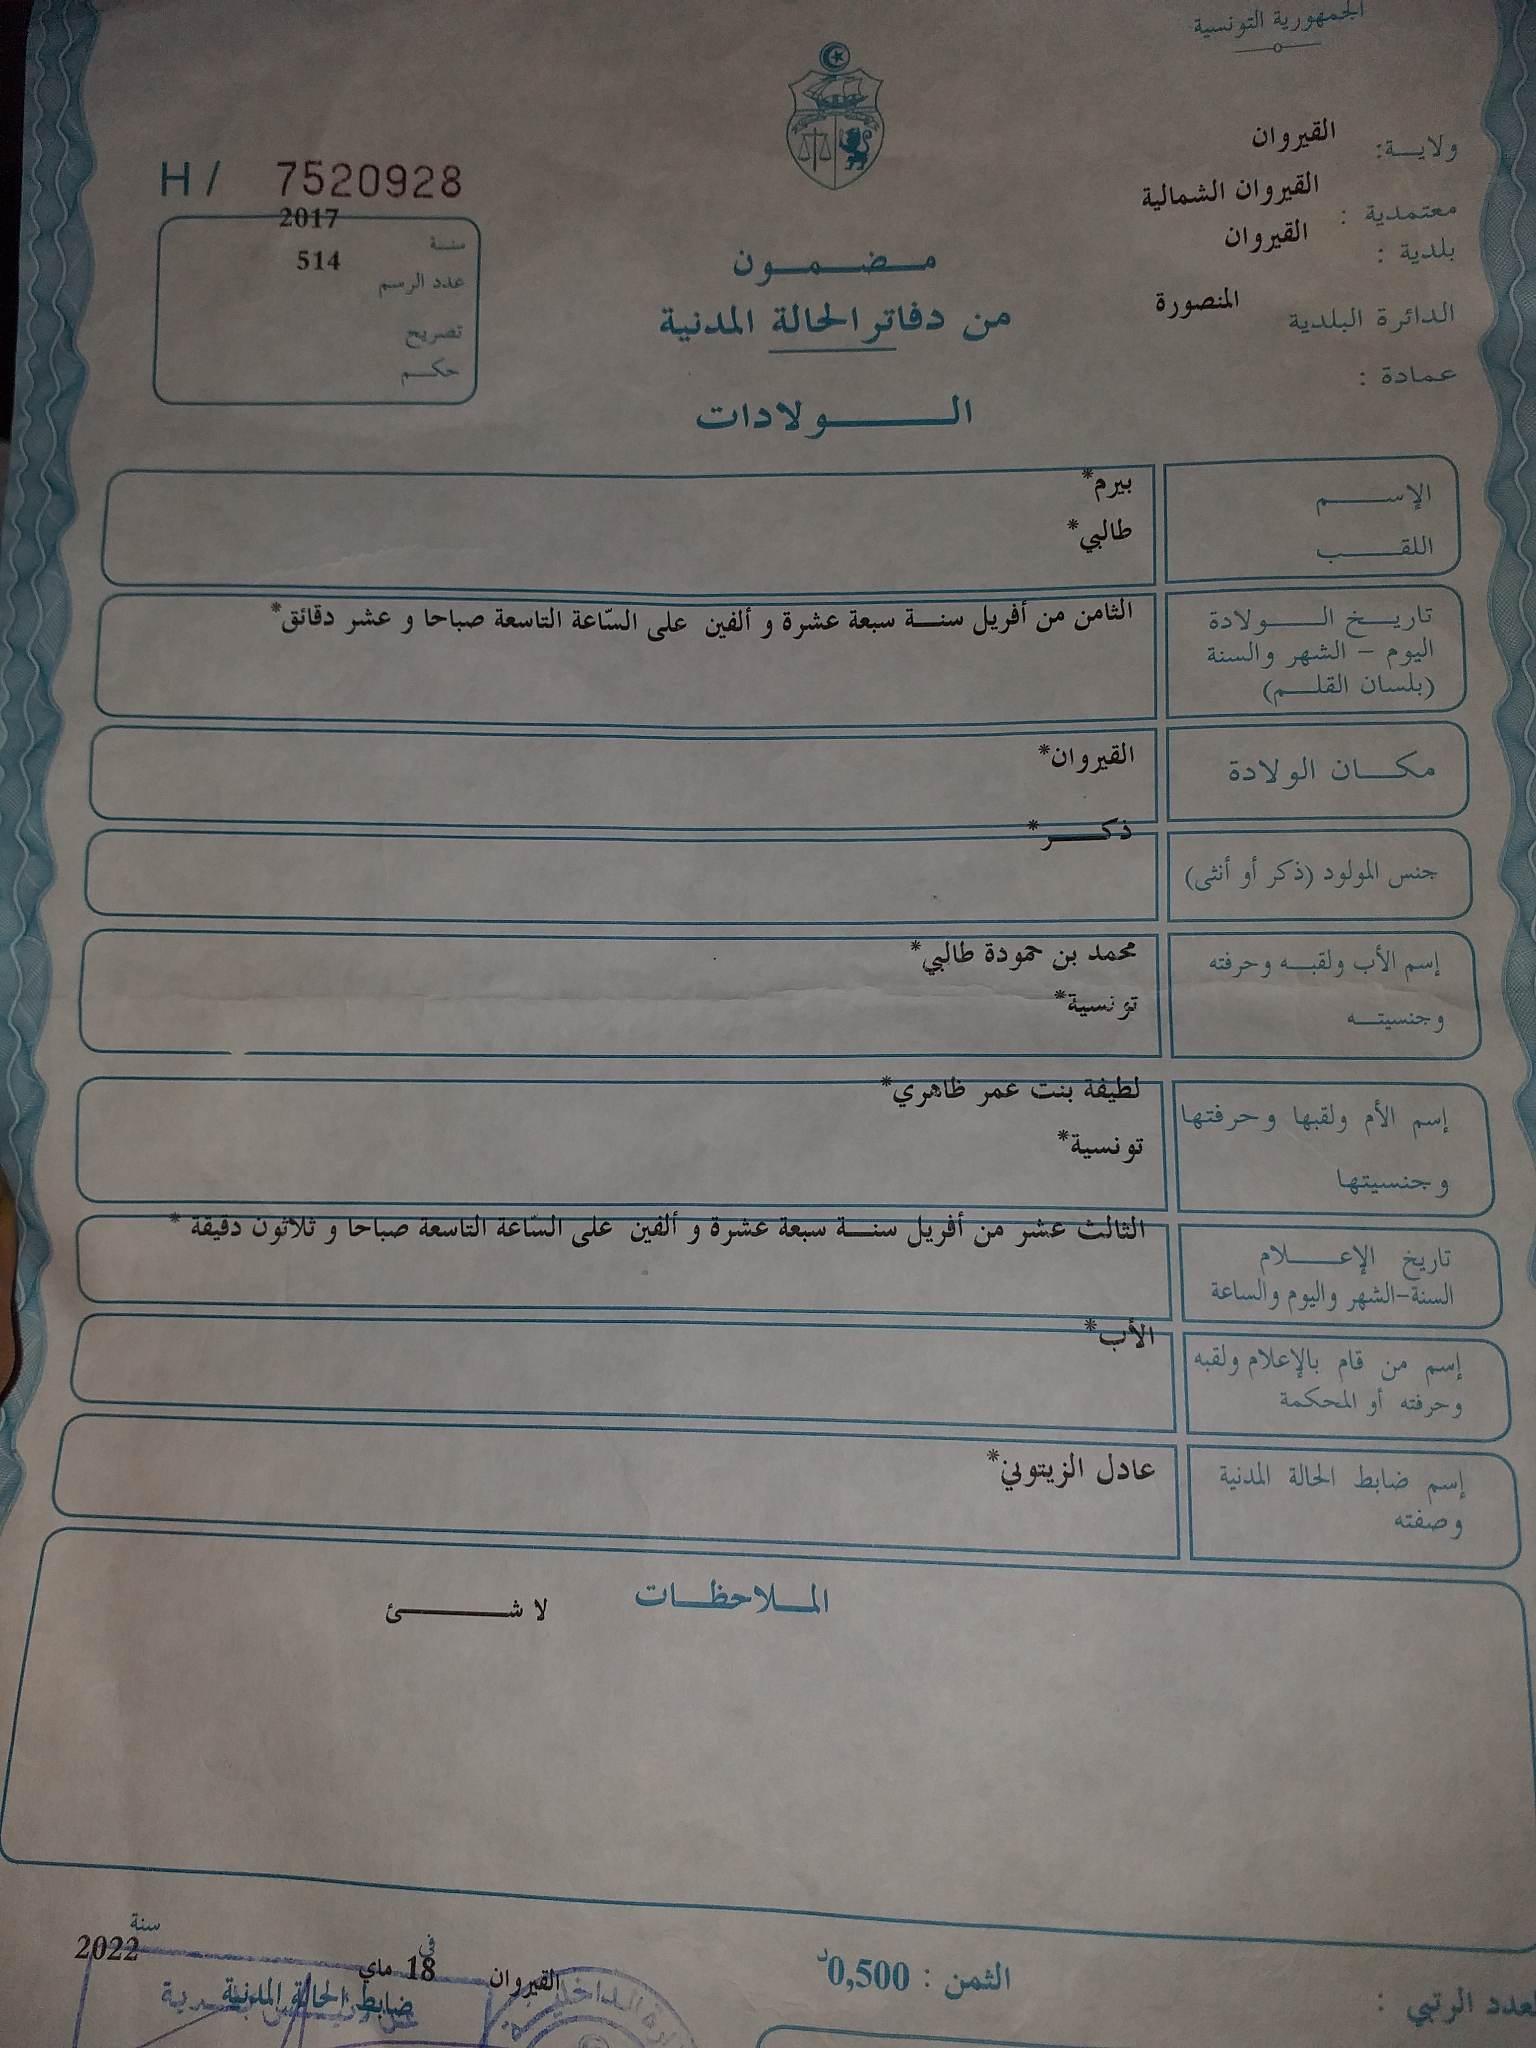 الجمهورية التونسية
ولايــة: القيروان
معتمدية : القيروان الشمالية
بلدية : القيروان
الدائرة البلدية المنصورة
عمادة :
H / 7520928
سنة 2017
عدد الرسم 514
تصريح
حكم
مضمون
من دفاتر الحالة المدنية
الولادات
الإسم بيرم*
اللقب طالبي*
تاريخ الولادة الثامن من أفريل سنة سبعة عشرة و ألفين على السّاعة التاسعة صباحا و عشر دقائق*
اليوم - الشهر والسنة
(بلسان القلم)
مكان الولادة القيروان*
جنس المولود (ذكر أو أنثى) ذكر*
إسم الأب ولقبه وحرفته محمد بن حمودة طالبي*
وجنسيته تونسية*
إسم الأم ولقبها وحرفتها لطيفة بنت عمر ظاهري*
وجنسيتها تونسية*
تاريخ الإعلام الثالث عشر من أفريل سنة سبعة عشرة و ألفين على السّاعة التاسعة صباحا و ثلاثون دقيقة *
السنة-الشهر واليوم والساعة
إسم من قام بالإعلام ولقبه الأب*
وحرفته أو المحكمة
إسم ضابط الحالة المدنية عادل الزيتوني*
وصفته
الملاحظات
لا شئ
القيروان في 18 ماي سنة 2022
ضابط الحالة المدنية
الثمن : 0,500د
العدد الرتبي :